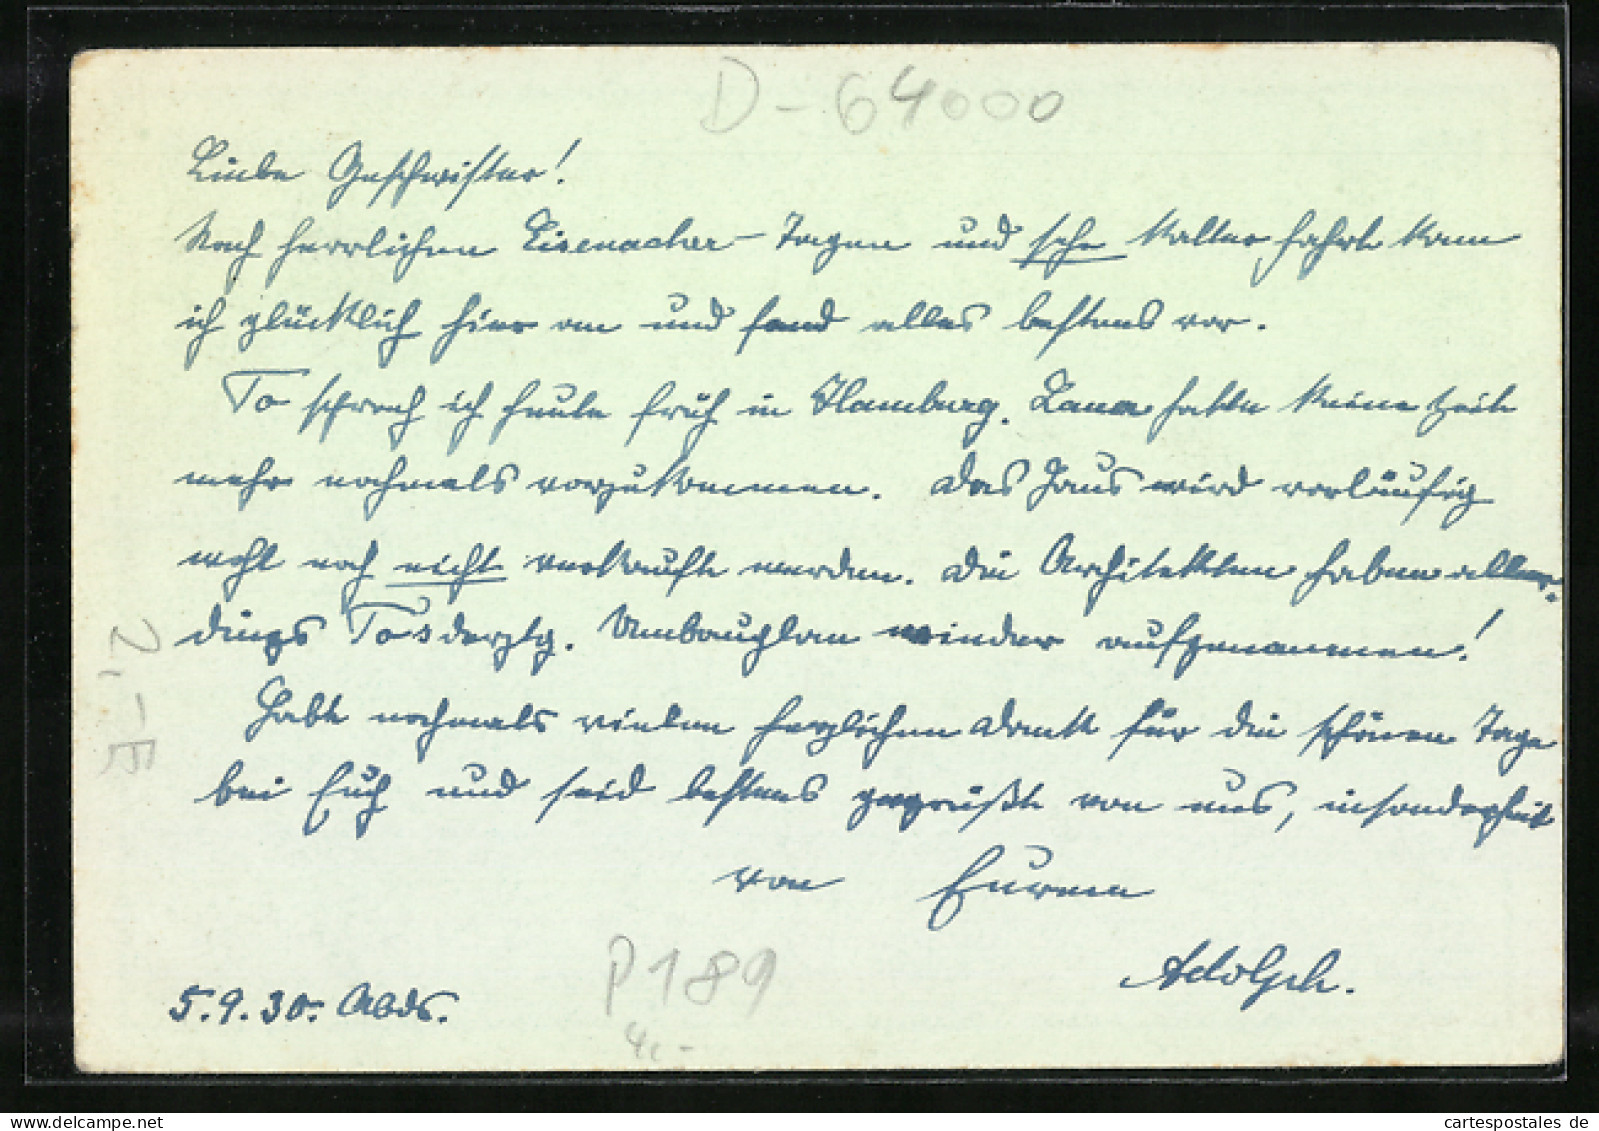 D - 64000
Liebe Geschwister!
Nach herrlichen Eisenacher-Tagen und sehr kalter Fahrt kam
ich glücklich hier an und fand alles bestens vor.
To sprach ich heute früh in Hamburg. hatte keine Zeit
mehr nochmals vorzukommen. Das Haus wird vorläufig
wohl noch nicht verkauft werden. Die Architekten haben aller-
dings To's derztg. Umbauplan wieder aufgenommen!
Habt nochmals vielen herzlichen Dank für die schönen Tage
bei Euch und seid bestens gegrüßt von uns, insonderheit
von Eurem
Adolph.
5.9.30. Abds.
P189
4,-
cartespostales de
http://www.delcampe.net